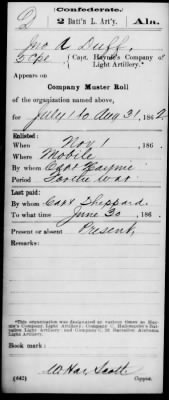 D
Confederate.
2 Batt'n L. Art'y. Ala.
Jno A Duff,
5 Cpl, Capt. Haynie's Company of
Light Artillery.*
Appears on
Company Muster Roll
of the organization named above,
for July 1 to Aug 31, 1862.
Enlisted:
When Nov 1, 186 .
Where Mobile
By whom Capt Haynie
Period For the war
Last paid:
By whom Capt Sheppard
To what time June 30, 186 .
Present or absent Present
Remarks:
*This organization was designated at various times as Haynie's Company Light Artillery; Company C, Hallonquist's Battalion Light Artillery; and Company C, 2d Battalion Alabama Light Artillery.
Book mark:
(642)
Copyist.